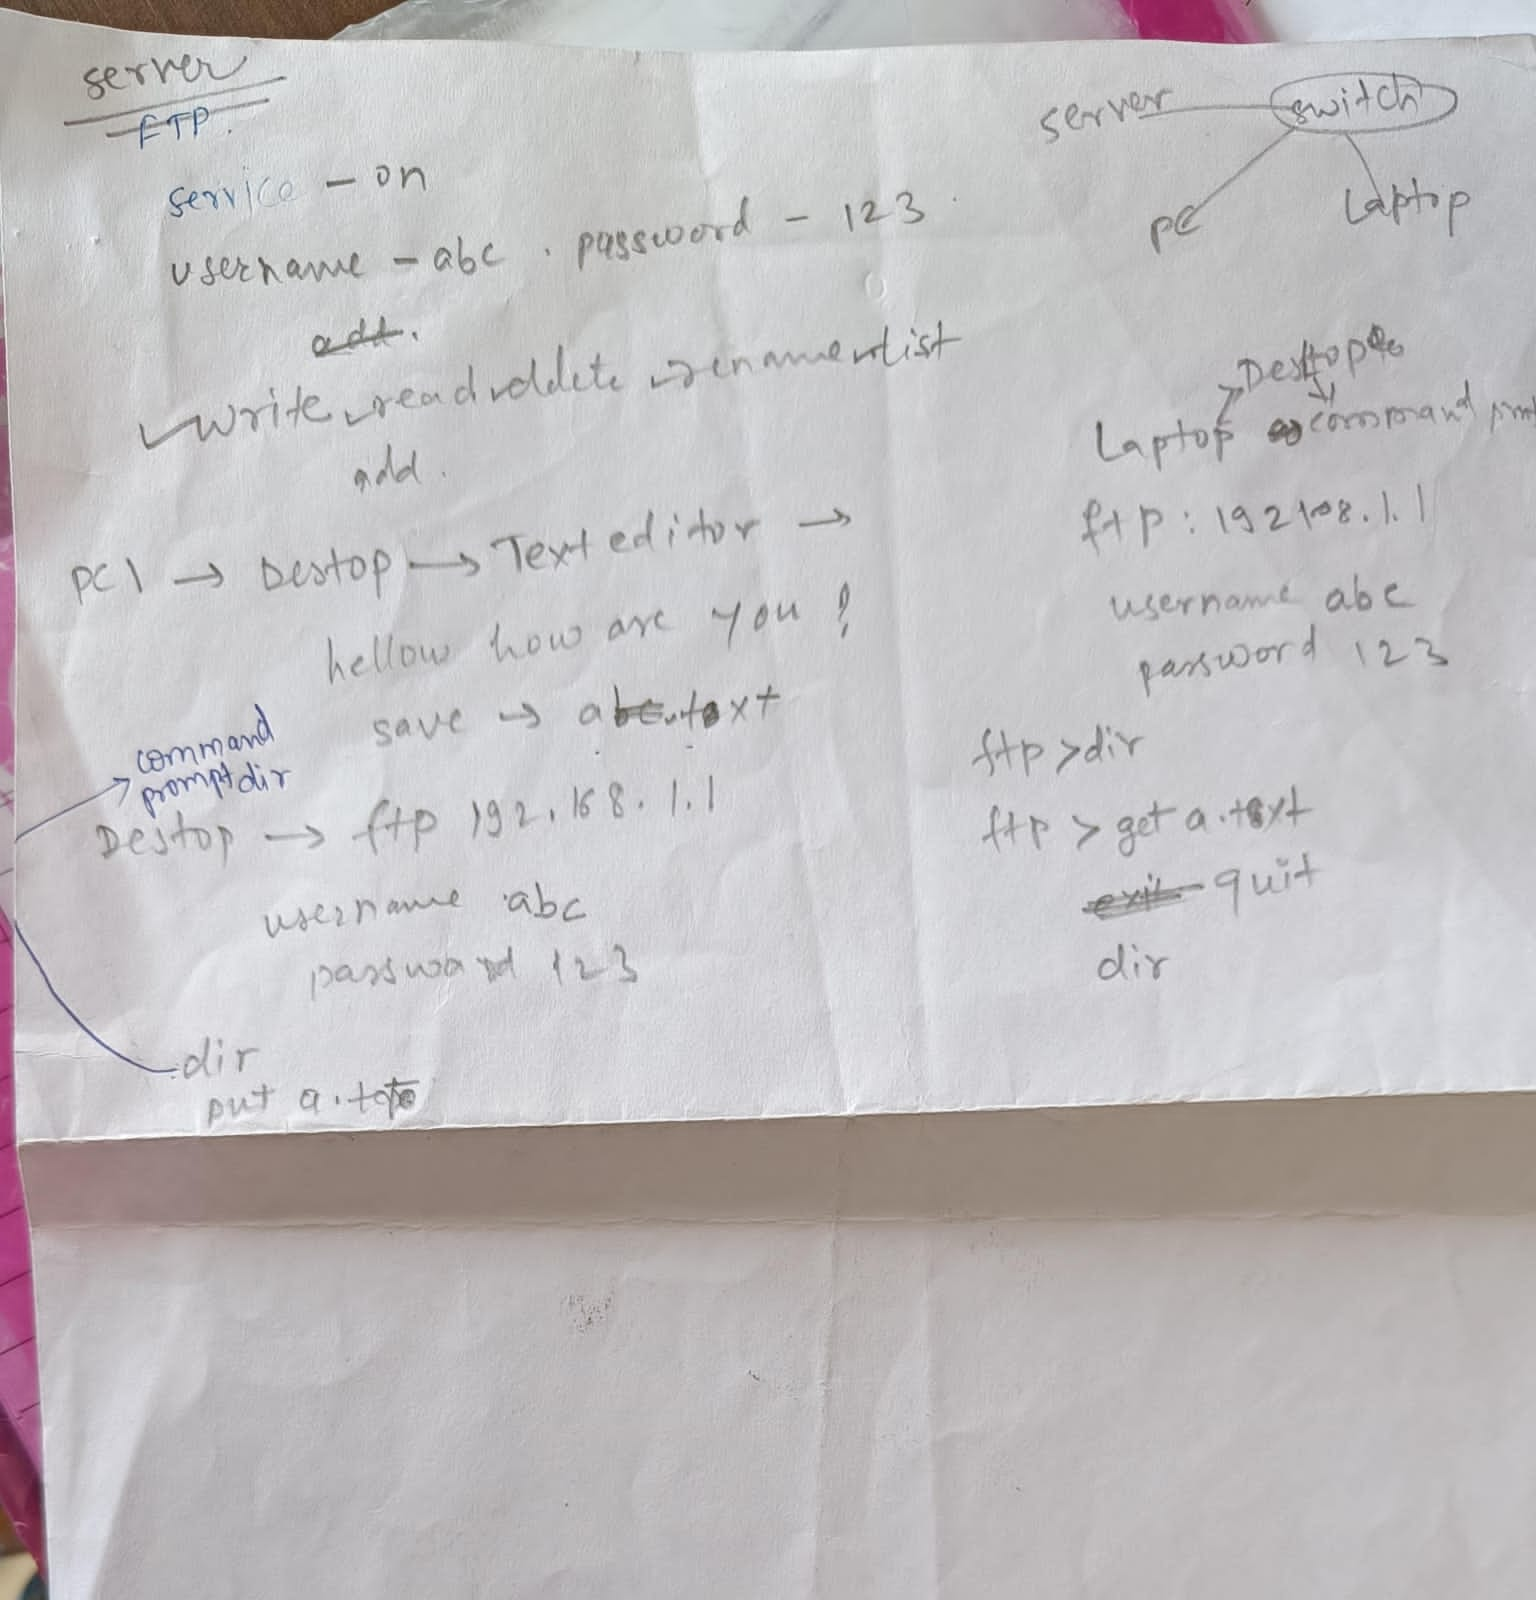 server
FTP.
service - on
username - abc . password - 123
add.
write read delete rename list
add.
PC1 → Destop → Text editor →
hellow how are you ?
save →
command
prompt dir
Destop → ftp 192.168.1.1
username abc
password 123
dir
put
server switch
PC Laptop
Destop
Laptop command
ftp : 192108.1.1
username abc
password 123
ftp >dir
ftp > get a.text
exit quit
dir